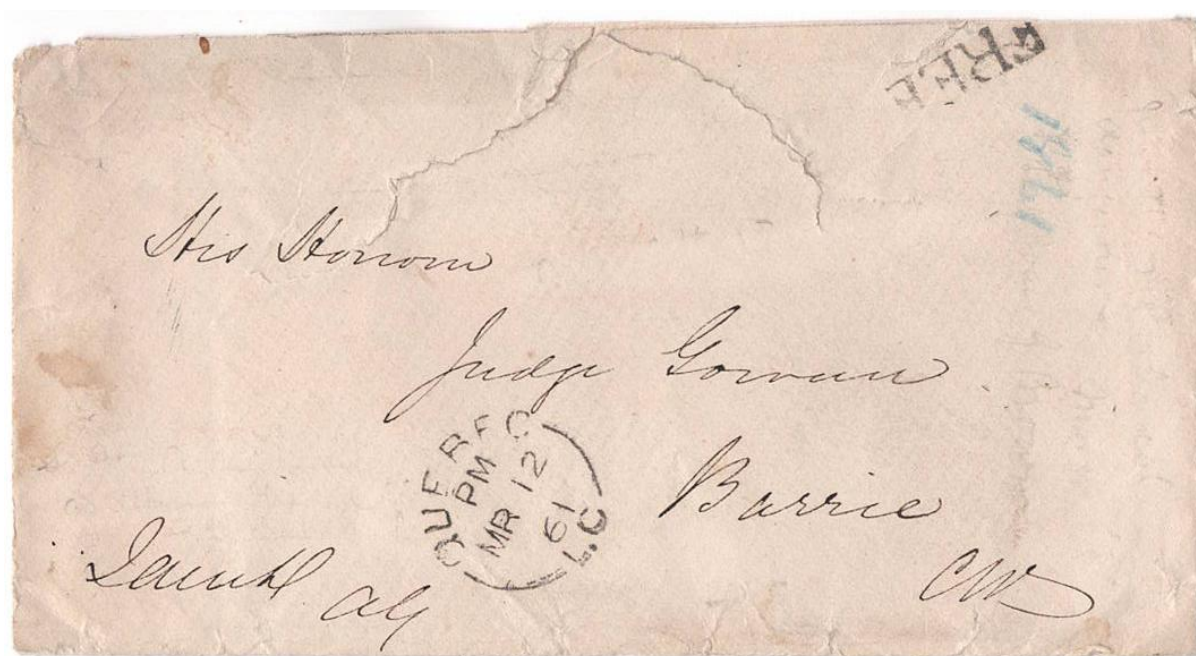 FREE
1861
His Honour
Judge Gowan
Barrie
QUEBEC L.C
PM
MR 12
61
CW